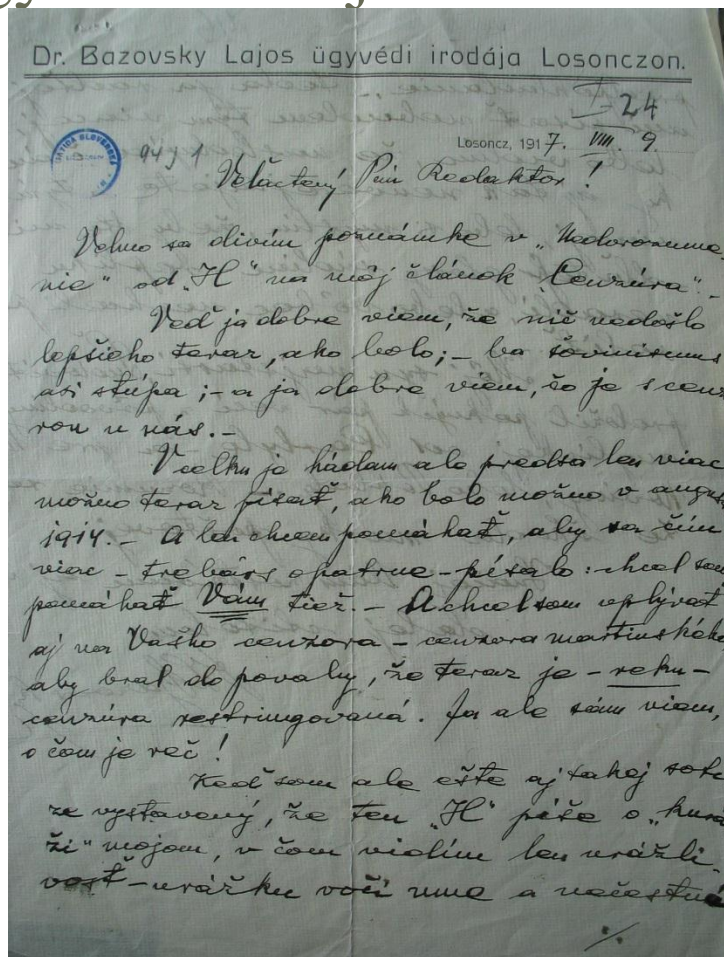 Dr. Bazovsky Lajos ügyvédi irodája Losonczon.
I-24
Losoncz, 1917. VIII. 9.
MATICA SLOVENSKÁ
94 J 1
Veľactený Pán Redaktor!
Veľmo sa divím poznámke v „Nedorozume-
nie“ od „H“ na môj článok „Cenzúra“. –
Veď ja dobre viem, že nič nedošlo
lepšieho teraz, ako bolo; – ba šovinismus
asi stúpa; – a ja dobre viem, čo je s cenz
rou u nás. –
Vcelku je hádam ale predsa len viac
možno teraz písať, ako bolo možno v augus
1914. – A len chcem pomáhať, aby sa čím
viac – trebárs opatrne – písalo: chcel som
pomáhať Vám tiež. – A chcel som vplývať
aj na Vašho cenzora – cenzora martinského
aby bral do povahy, že teraz je – reku –
cenzúra restringovaná. Ja ale sám viem,
o čom je reč!
Keď som ale ešte aj takej
ze vystavený, že ten „H“ píše o „kura
ži“ mojom, v čom vidím len urážli-
vosť – urážku voči mne a nečestné
./.